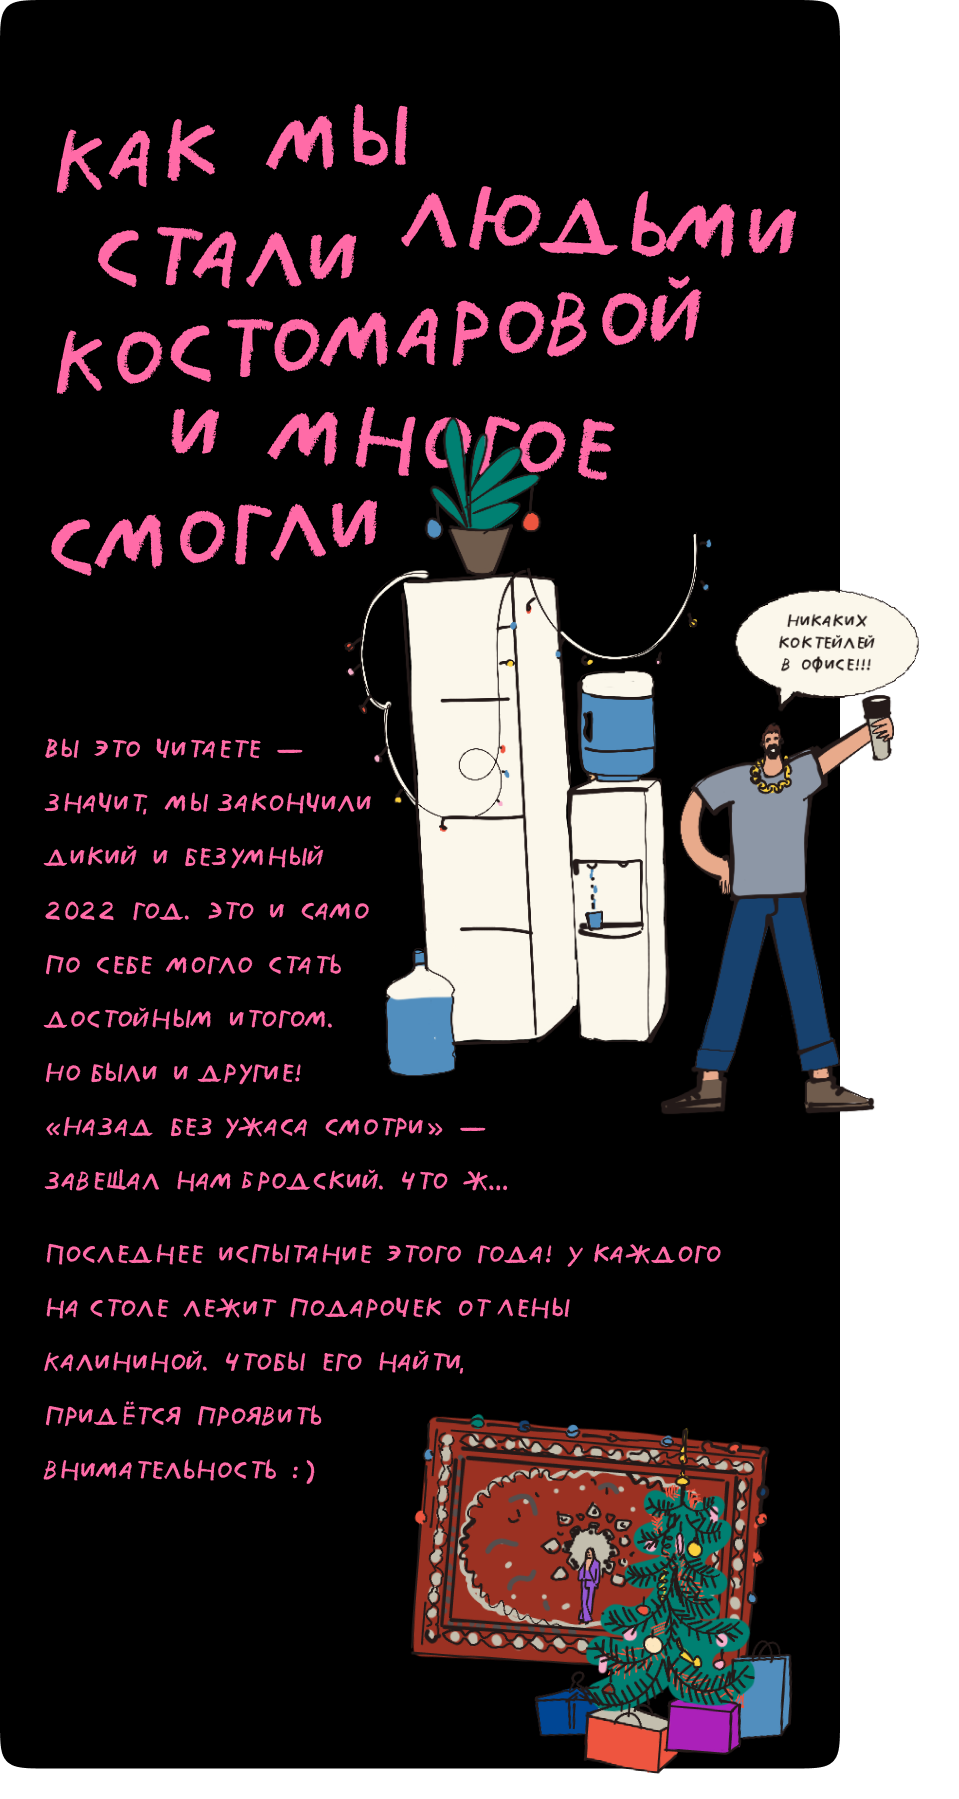 КАК МЫ
СТАЛИ ЛЮДЬМИ
КОСТОМАРОВОЙ
И МНОГОЕ
СМОГЛИ
НИКАКИХ
КОКТЕЙЛЕЙ
В ОФИСЕ!!!
ВЫ ЭТО ЧИТАЕТЕ —
ЗНАЧИТ, МЫ ЗАКОНЧИЛИ
ДИКИЙ И БЕЗУМНЫЙ
2022 ГОД. ЭТО И САМО
ПО СЕБЕ МОГЛО СТАТЬ
ДОСТОЙНЫМ ИТОГОМ.
НО БЫЛИ И ДРУГИЕ!
«НАЗАД БЕЗ УЖАСА СМОТРИ» —
ЗАВЕЩАЛ НАМ БРОДСКИЙ. ЧТО Ж...
ПОСЛЕДНЕЕ ИСПЫТАНИЕ ЭТОГО ГОДА! У КАЖДОГО
НА СТОЛЕ ЛЕЖИТ ПОДАРОЧЕК ОТ ЛЕНЫ
КАЛИНИНОЙ. ЧТОБЫ ЕГО НАЙТИ,
ПРИДЁТСЯ ПРОЯВИТЬ
ВНИМАТЕЛЬНОСТЬ :)